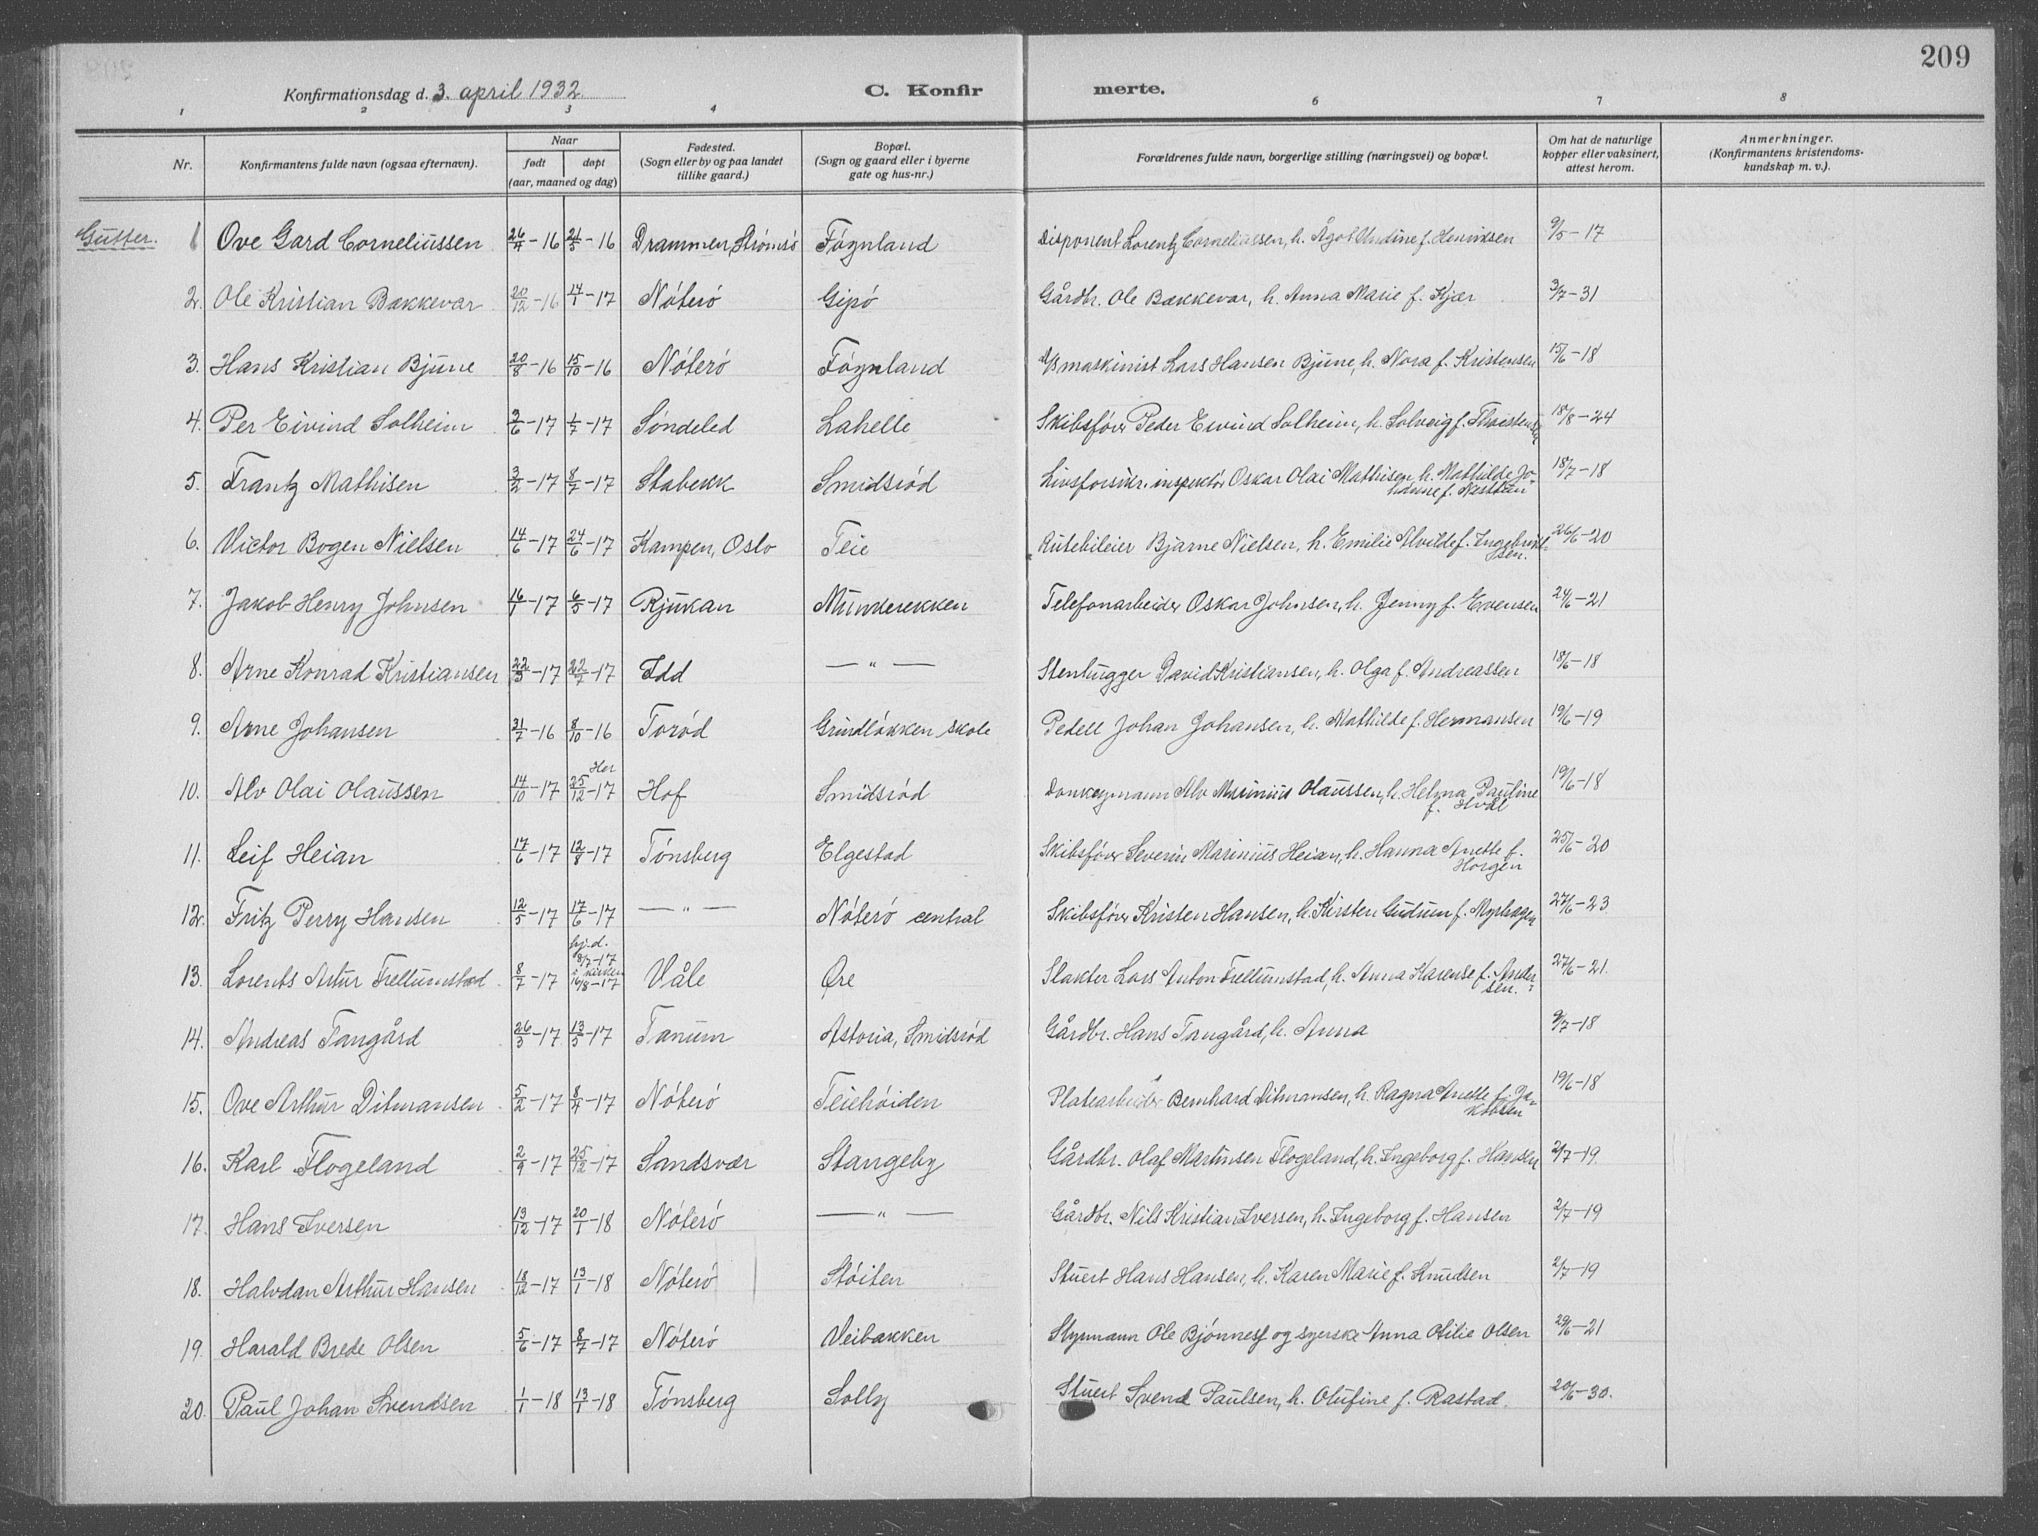 209
Konfirmationsdag d. 3. april 1932.
C. Konfir merte.
1 2 3 4 6 7 8
Nr.
Konfirmantens fulde navn (ogsaa efternavn).
Naar
født
døpt
(aar, maaned og dag)
Fødested.
(Sogn eller by og paa landet
tillike gaard.)
Bopæl.
(Sogn og gaard eller i byerne
gate og hus-nr.)
Forældrenes fulde navn, borgerlige stilling (næringsvei) og bopæl.
Om hat de naturlige
kopper eller vaksinert,
attest herom.
Anmerkninger.
(Konfirmantens kristendoms-
kundskap m. v.).
Gutter. 1 Ove Gard Corneliussen 26/4-16 21/5-16 Drammen, Strömsö Föynland Disponent Lorentz Corneliussen, h. Ågot Undine f. Henriksen 9/5-17
2. Ole Kristian Bækkevar 20/12-16 14/1-17 Nöterö Gipö Gårdbr. Ole Bækkevar, h. Anna Marie f. Kjær 3/7-31
3. Hans Kristian Bjune 20/8-16 15/10-16 Nöterö Föynland maskinist Lars Hansen Bjune, h. Nora f. Kristensen 15/6-18
4. Per Eivind Solheim 3/6-17 1/7-17 Söndeled Lahelle Skibsförer Peder Eivind Solheim, h. Solveig f. 18/8-24
5. Frantz Mathisen 3/2-17 8/7-17 Stabekk Smidsröd Livsforsikr. inspektör Oskar Olai Mathisen, h. Mathilde Jo-
hanne f. 18/7-18
6. Victor Bogen Nielsen 14/6-17 24/6-17 Kampen, Oslo Teie Rutebileier Bjarne Nielsen, h. Emilie Alvilde f. Ingebrikt-
sen. 26/6-20
7. Jakob Henry Johnsen 16/1-17 6/5-17 Rjukan Munderekken Telefonarbeider Oskar Johnsen, h. Jenny f. Evensen 24/6-21
8. Arne Konrad Kristiansen 22/5-17 22/7-17 Idd — " — Stenhugger David Kristiansen, h. Olga f. Andreassen 18/6-18
9. Arne Johansen 31/7-16 8/10-16 Toröd Grindlökken skole Pedell Johan Johansen, h. Mathilde f. Hermansen 19/6-19
10. Alv Olai Olaussen 14/10-17 Hof
25/12-17 Hof Smidsröd Donkeymann Alv Marinius Olaussen, h. Helma Pauline
f. Hval 19/6-18
11. Leif Heian 17/6-17 12/8-17 Tönsberg Elgestad Skibsförer Severin Marinius Heian, h. Hanna Anette f.
Horgen 25/6-20
12. Fritz Perry Hansen 12/5-17 17/6-17 — " — Nöterö central Skibsförer Kristen Hansen, h. Kirsten Gudrun f. Myrhagen 27/6-23
13. Lorents Artur Frellumstad 8/7-17 hj.d.
8/7-17
i kirken
16/8-17 Våle Øre Slakter Lars Anton Frellumstad, h. Anna Karense f. Ander-
sen. 27/6-21.
14. Andreas Tangård 26/3-17 13/5-17 Tanum Astoria, Smidsröd Gårdbr. Hans Tangård, h. Anna 9/7-18
15. Ove Arthur Ditmansen 5/2-17 8/4-17 Nöterö Teiehöiden Platearbeider Bernhard Ditmansen, h. Ragna Anette f. Ja-
kobsen 19/6-18
16. Karl Flogeland 2/9-17 25/12-17 Sandsvær Stangeby Gårdbr. Olaf Martinsen Flogeland, h. Ingeborg f. Hansen 2/7-19.
17. Hans Iversen 13/12-17 20/1-18 Nöterö — " — Gårdbr. Nils Kristian Iversen, h. Ingeborg f. Hansen 2/7-19
18. Halvdan Arthur Hansen 18/12-17 13/1-18 Nöterö Stöiten Stuert Hans Hansen, h. Karen Marie f. Knudsen 2/7-19
19. Harald Brede Olsen 5/6-17 8/7-17 Nöterö Veibakken Styrmann Ole Bjönnes og syerske Anna Otilie Olsen 29/6-21
20. Paul Johan Svendsen 1/1-18 13/1-18 Tönsberg Solby Stuert Svend Paulsen, h. Olufine f. Rastad. 20/6-30.